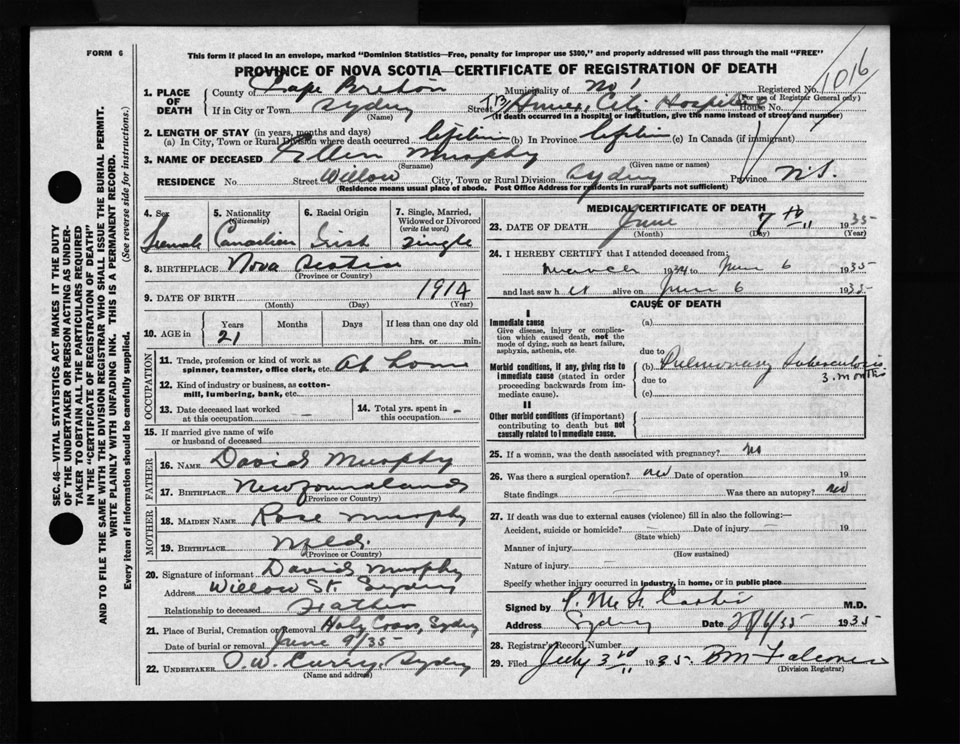 FORM 6
This form if placed in an envelope, marked "Dominion Statistics—Free, penalty for improper use $300," and properly addressed will pass through the mail "FREE"
PROVINCE OF NOVA SCOTIA—CERTIFICATE OF REGISTRATION OF DEATH
1016
1. PLACE OF DEATH County of Cape Breton Municipality of No 1 Registered No.
(For use of Registrar General only)
If in City or Town Sydney Street City Hospital House No.
(Name) (If death occurred in a hospital or institution, give the name instead of street and number)
2. LENGTH OF STAY (in years, months and days)
(a) In City, Town or Rural Division where death occurred lifetime (b) In Province lifetime (c) In Canada (if immigrant)
3. NAME OF DECEASED Ellen Murphy
(Surname) (Given name or names)
RESIDENCE No Street Willow City, Town or Rural Division Sydney Province N.S.
(Residence means usual place of abode. Post Office Address for residents in rural parts not sufficient)
4. Sex Female
5. Nationality (Citizenship) Canadian
6. Racial Origin Irish
7. Single, Married, Widowed or Divorced (write the word) Single
8. BIRTHPLACE Nova Scotia
(Province or Country)
9. DATE OF BIRTH 1914
(Month) (Day) (Year)
10. AGE in Years 21 Months Days If less than one day old
hrs. or min.
OCCUPATION
11. Trade, profession or kind of work as spinner, teamster, office clerk, etc. At home
12. Kind of industry or business, as cotton-mill, lumbering, bank, etc.
13. Date deceased last worked at this occupation —
14. Total yrs. spent in this occupation —
15. If married give name of wife or husband of deceased
FATHER
16. NAME David Murphy
17. BIRTHPLACE Newfoundland
(Province or Country)
MOTHER
18. MAIDEN NAME Rose Murphy
19. BIRTHPLACE Nfld.
(Province or Country)
20. Signature of informant David Murphy
Address Willow St. Sydney
Relationship to deceased Father
21. Place of Burial, Cremation or Removal Holy Cross, Sydney
Date of burial or removal June 9/35
22. UNDERTAKER O.W. Curry, Sydney
(Name and address)
MEDICAL CERTIFICATE OF DEATH
23. DATE OF DEATH June 7th 1935
(Month) (Day) (Year)
24. I HEREBY CERTIFY that I attended deceased from:
March 1934 to June 6 1935
and last saw h er alive on June 6 1935
CAUSE OF DEATH
I
Immediate cause
Give disease, injury or complication which caused death, not the mode of dying, such as heart failure, asphyxia, asthenia, etc.
(a)
due to
Morbid conditions, if any, giving rise to immediate cause (stated in order proceeding backwards from immediate cause).
(b) Pulmonary tuberculosis
due to 3 months
(c)
II
Other morbid conditions (if important) contributing to death but not causally related to immediate cause.
25. If a woman, was the death associated with pregnancy? no
26. Was there a surgical operation? no Date of operation 19
State findings Was there an autopsy? no
27. If death was due to external causes (violence) fill in also the following:—
Accident, suicide or homicide? Date of injury 19
(State which)
Manner of injury
(How sustained)
Nature of injury
Specify whether injury occurred in industry, in home, or in public place
Signed by M.D.
Address Sydney Date 28/6/35 1935
28. Registrar's Record Number
29. Filed July 3rd 1935
(Division Registrar)
SEC. 46—VITAL STATISTICS ACT MAKES IT THE DUTY
OF THE UNDERTAKER OR PERSON ACTING AS UNDER-
TAKER TO OBTAIN ALL THE PARTICULARS REQUIRED
IN THE "CERTIFICATE OF REGISTRATION OF DEATH"
AND TO FILE THE SAME WITH THE DIVISION REGISTRAR WHO SHALL ISSUE THE BURIAL PERMIT.
WRITE PLAINLY WITH UNFADING INK. THIS IS A PERMANENT RECORD.
Every item of information should be carefully supplied. (See reverse side for instructions.)